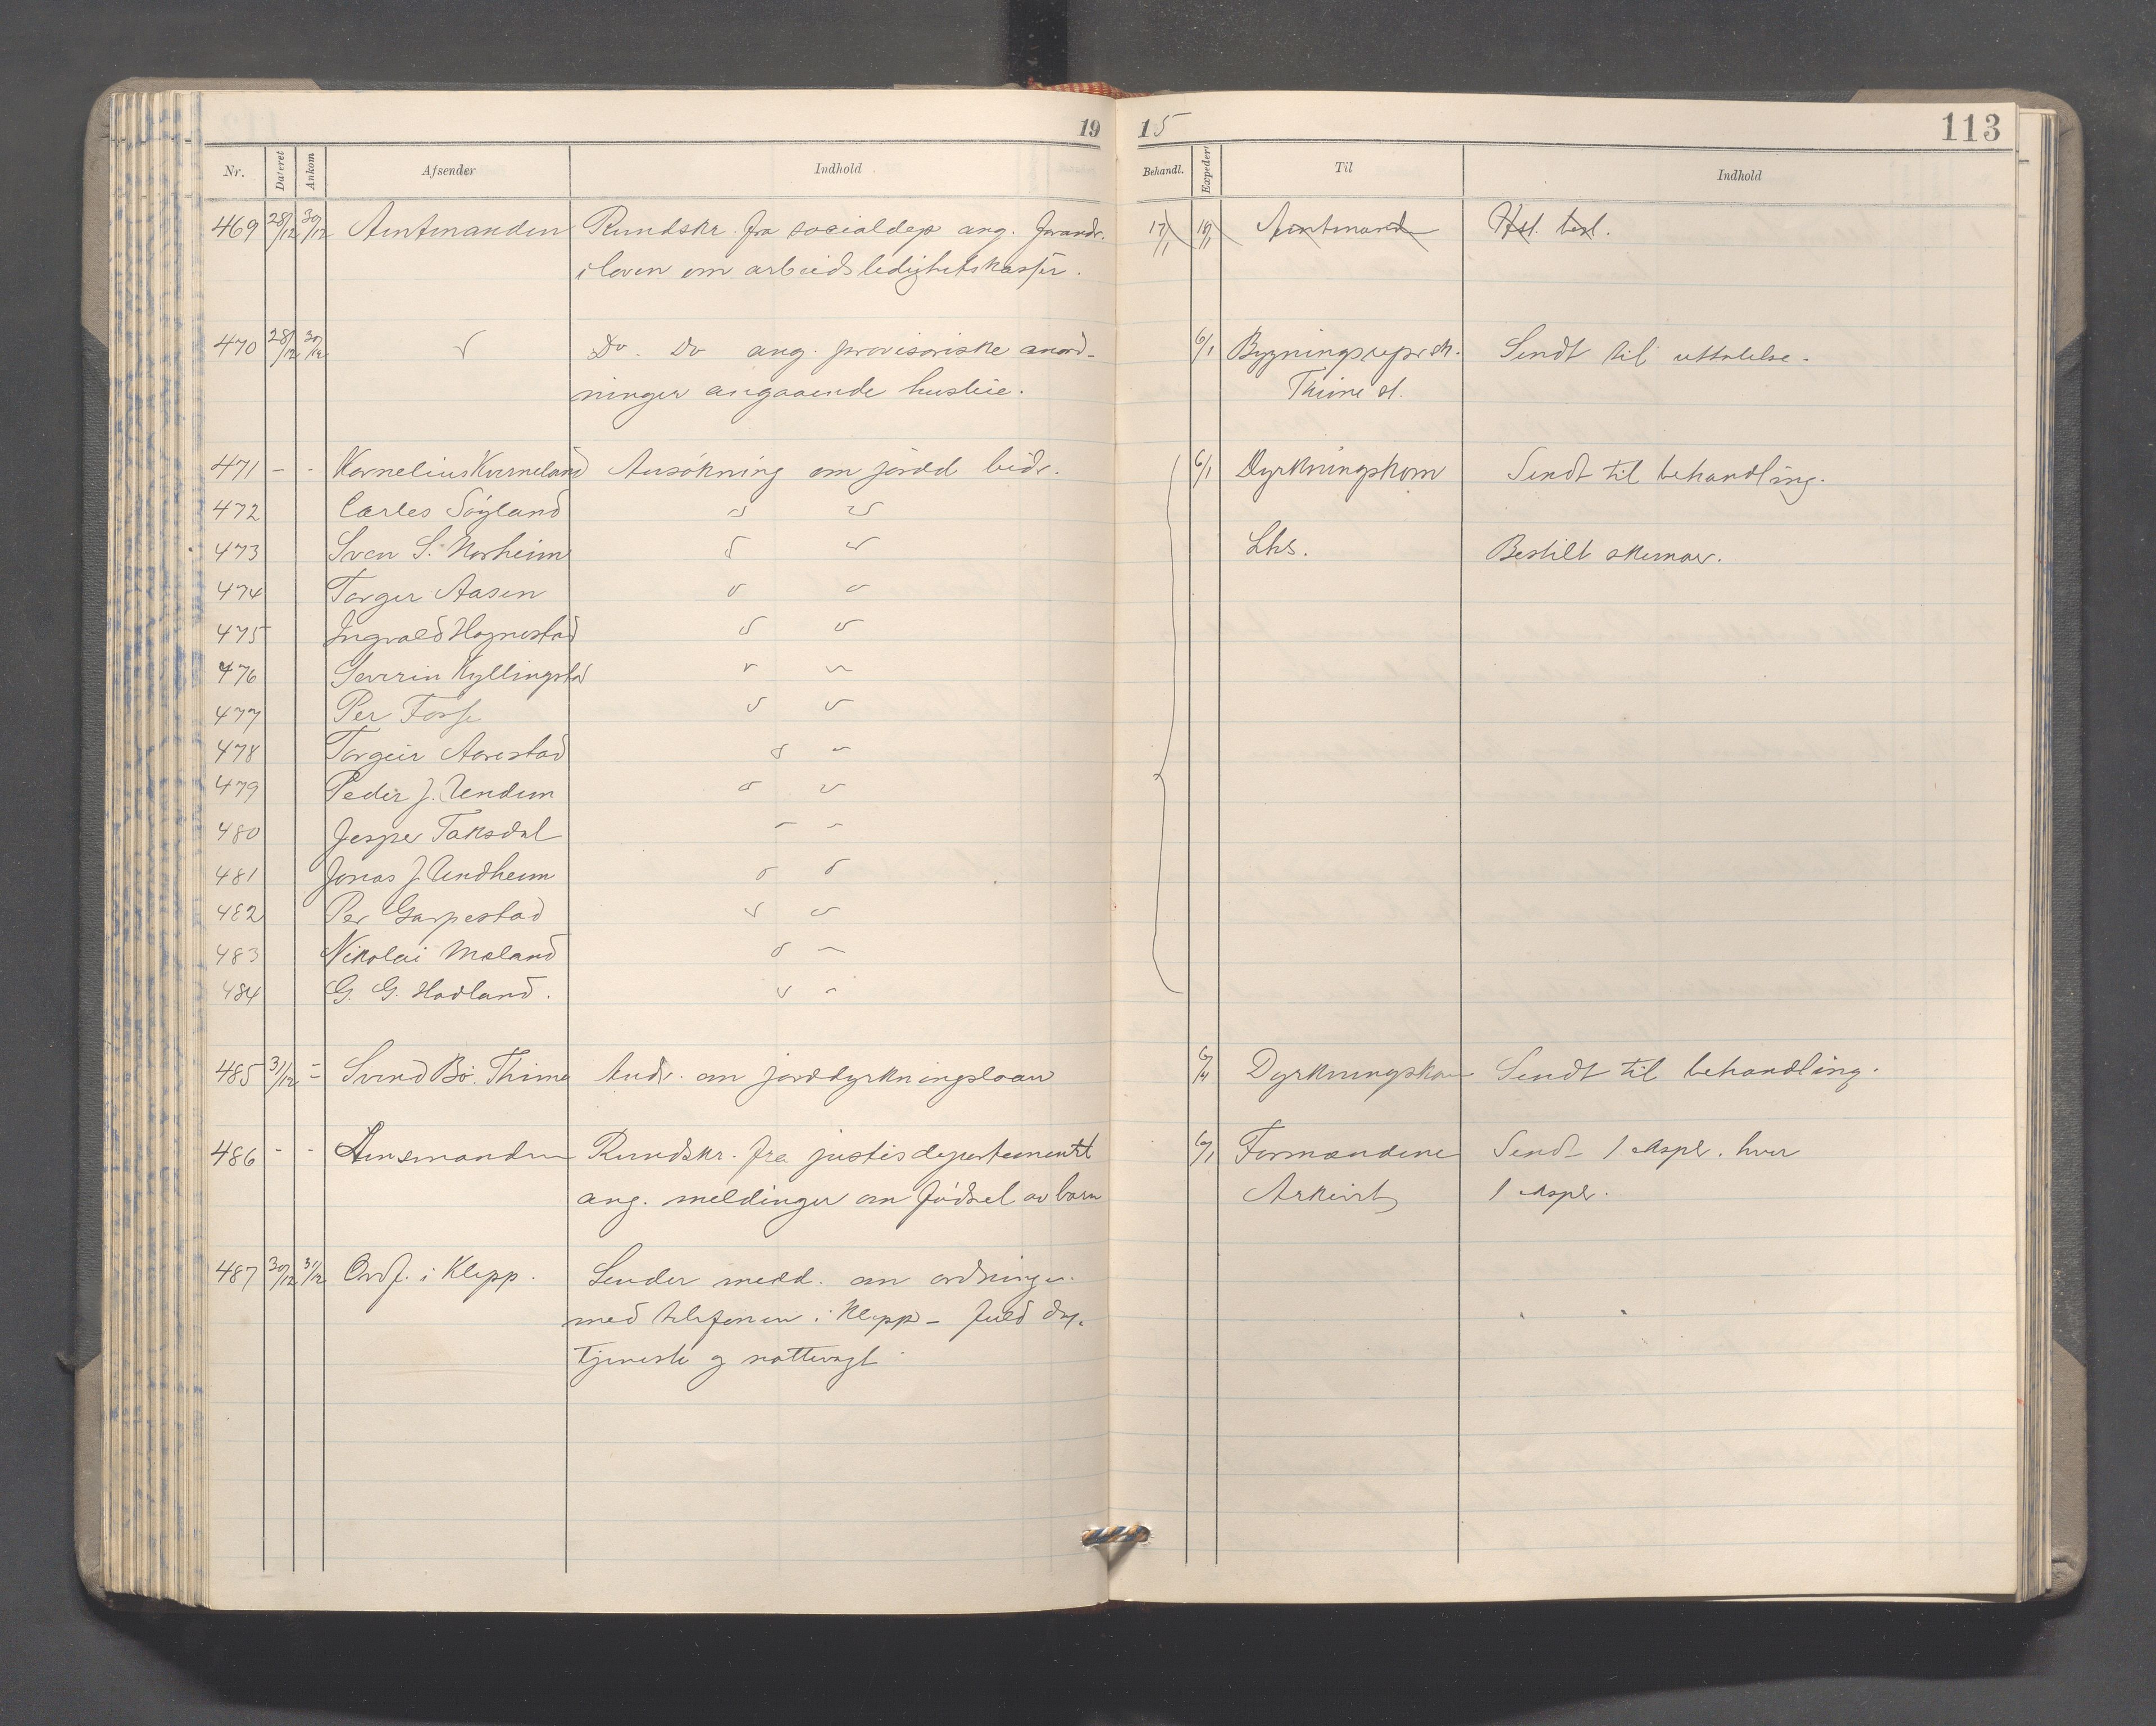 19 15 113
Nr. Dateret Ankom Afsender Indhold Behandl. Expedert Til Indhold
469 28/12 30/12 Amtmanden Rundskr. fra socialdep ang. forandr. 17/1 18/1 Amtmand Hst. besl.
i loven om arbeidsledighetskasser.
470 28/12 30/12 Do. Do ang. provisoriske anord- 6/1 Bygningsrepr. Sendt til uttalelse.
ninger angaaende husleie. Thime st.
471 - - Kornelius Kverneland Ansökning om jordd bidr. 6/1 Dyrkningskom Sendt til behandling.
472 Carles Söyland
473 Sven S. Norheim Lhs. Bestilt skemaer.
474 Torger Aasen
475 Ingvald Hognestad
476 Severin Kyllingstad
477 Per Fosse
478 Torgeir Aarestad
479 Peder J. Undem
480 Jesper Taksdal
481 Jonas J. Undheim
482 Per Garpestad
483 Nikolai Moland
484 G. G. Hadland.
485 31/12 - Svend Bö. Thime Andr. om jorddyrkningslaan 6/1 Dyrkningskom Sendt til behandling.
486 - - Amtmanden Rundskr. fra justisdepartementet 6/1 Formændene Sendt 1 expl. hver
ang. meldinger om födsel av barn Arkivet 1 expl.
487 30/12 31/12 Ordf. i Klepp. Sender medd. om ordningen
med telefonen i Klepp - fuld dag-
tjeneste og nattevagt